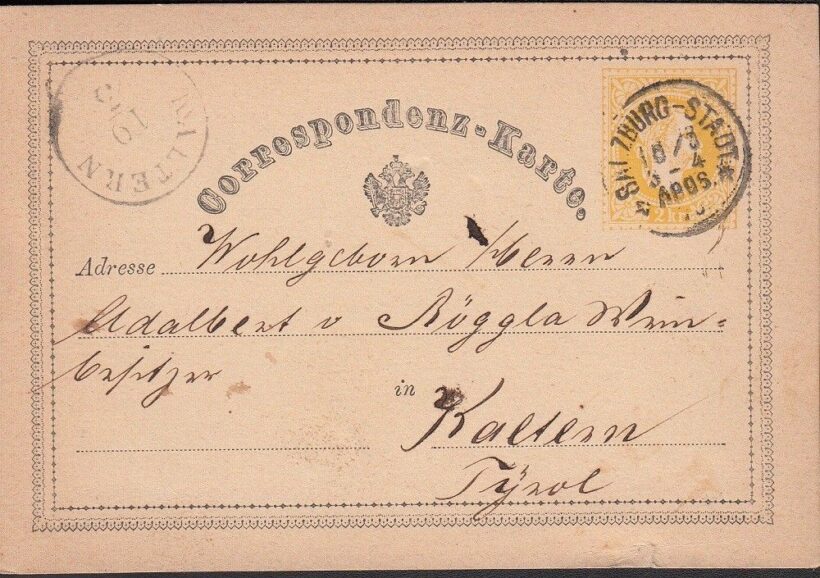 Correspondenz-Karte.
KALTERN
19
SALZBURG-STADT
18/3
3-4
2 kr
Adresse Wohlgeborn Herrn
Adalbert v Röggla Wein=
besitzer
in Kaltern
Tÿrol